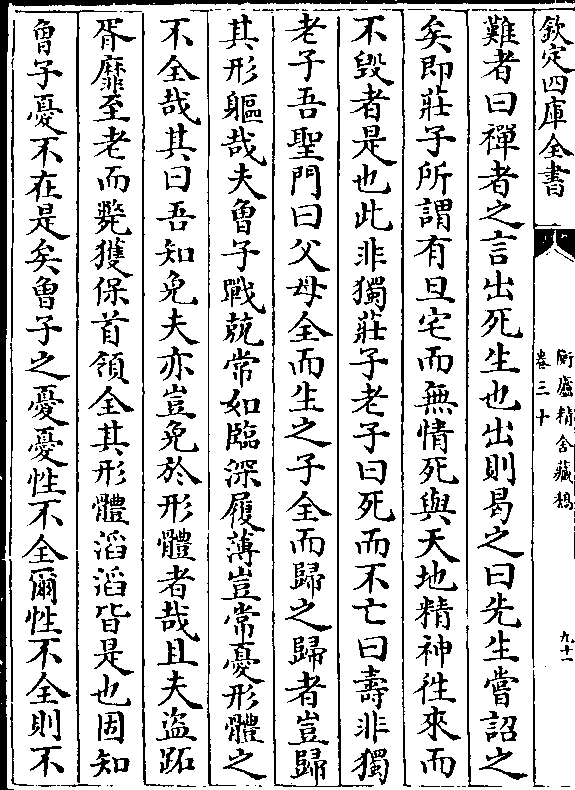 欽定四庫全書
衡廬精舍藏稿
卷三十
九十一
難者曰禪者之言出死生也出則曷之曰先生嘗詔之
矣即莊子所謂有旦宅而無情死與天地精神往來而
不毀者是也此非獨莊子老子曰死而不亡曰壽非獨
老子吾聖門曰父母全而生之子全而歸之歸者豈歸
其形軀哉夫曾子戰兢常如臨深履薄豈常憂形體之
不全哉其曰吾知免夫亦豈免於形體者哉且夫盜跖
胥靡至老而斃獲保首領全其形體滔滔皆是也固知
曾子憂不在是矣曾子之憂憂性不全爾性不全則不